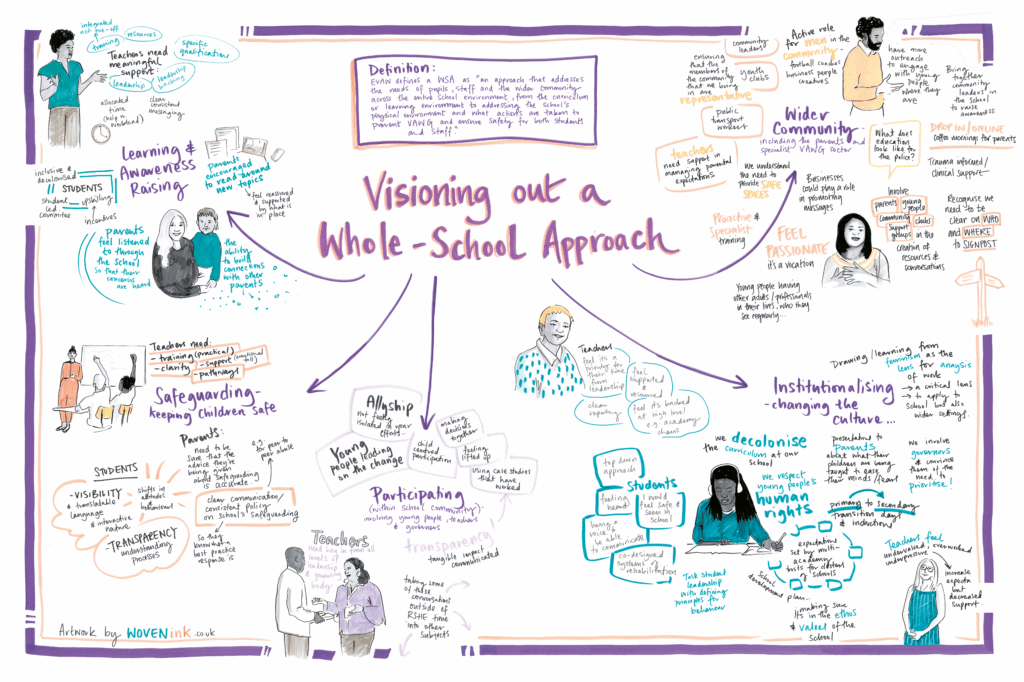 Definition:
EVAW defines a WSA as "an approach that addresses
the needs of pupils, staff and the wider community
across the entire school environment, from the curriculum
or learning environment to addressing the school's
physical environment and what actions are taken to
prevent VAWG and ensure safety for both students
and staff."
Visioning out a
Whole-School Approach
integrated
not one-off
resources
training
Teachers need
meaningful
support:
specific
qualifications
leadership
leadership
teaching
allocated
time
(help w
workload)
clear
consistent
messaging
Learning &
Awareness
Raising
inclusive &
decolonised
STUDENTS
student
led committee
upskilling
incentives
parents
encouraged
to read around
new topics
feel reassured
& supported
by what is
in place
Parents
feel listened
to through
the school
so that their
concerns
are heard
the
ability
to build
connections
with other
parents
Teachers need:
- training (practical)
- clarity
- support (emotional toll)
- pathways
Safeguarding-
keeping Children Safe
Parents:
need to be
sure that the
advice they're
being given
about safeguarding
is accurate
e.g. peer to
peer abuse
STUDENTS
- VISIBILITY
& translatable
language
& interactive
nature
shifts in
attitudes
& behaviours
- TRANSPARENCY
understanding
processes
clear communication/
consistent policy
on school's safeguarding
so they
know what a
best practice
response is
Artwork by WOVENink.co.uk
Allyship
not feeling
isolated in your
efforts...
Young
people leading
on the change
child
centred
participation
making
decisions
together
feeling
lifted up
using case studies
that have
worked
Participating
(within school community)
involving young people, teachers
& governors
Teachers
need buy in from all
levels of
leadership
& governing
body
transparency
tangible impact
communicated
taking some
of these
conversations
outside of
RSHE time
into other
subjects
Teachers
feel it's a
priority for
their time
from
leadership
feel
supported
&
resourced
clear
reporting
feel it's backed
at high level
e.g. academy
chains
Institutionalising
- changing the
culture...
Drawing/learning from
feminism as the
lens for analysis
of work
→ a critical lens
→ to apply to
school but also
wider settings.
we decolonise
the curriculum at our
school
top down
approach
Students
feeling
heard
I would
feel safe &
seen in
school
having a
voice &
be able
to communicate
co-designed
systems of
rehabilitation
Task student
leadership
with defining
principles for
behaviour
we respect
young people's
human
rights
presentations to
parents
about what their
children are being
taught to ease
their minds/fears
we involve
governors
& convince
them of the
need to
prioritise!
primary to secondary
transition days
& inductions
expectations
set by multi-
academy
trusts for clusters
of schools
School
development plan...
making sure
it's in the ethos
& values of the
school
Teachers feel
undervalued, overworked
underpressure
increase
expects
but
decreased
support.
Wider
Community
including the parents and
specialist VAWG sector
community
leaders
ensuring
that the
members of
the community
that we bring
in are
representative
youth
clubs
public
transport
workers
teachers
need support in
managing parental
expectations
we understand
the need to
provide SAFE
SPACES
Proactive &
Specialist
training
FEEL
PASSIONATE
it's a vocation
Young people having
other adults/professionals
in their lives, who they
see regularly...
Active role
for men in the
community-
football coaches
business people
creatives
have more
outreach
to engage
with young
people
where they
are
Bring
together
communities
leaders in
the school
to raise
awareness
What does
education
look like for
the police?
DROP IN/ONLINE
coffee mornings for parents
Trauma informed/
clinical support
Businesses
could play a role
in promoting
messages
Involve
parents
young
people
community
clubs
support
groups
in the
creation of
resources &
conversations
Recognise we
need to be
clear on WHO
and WHERE
to SIGNPOST